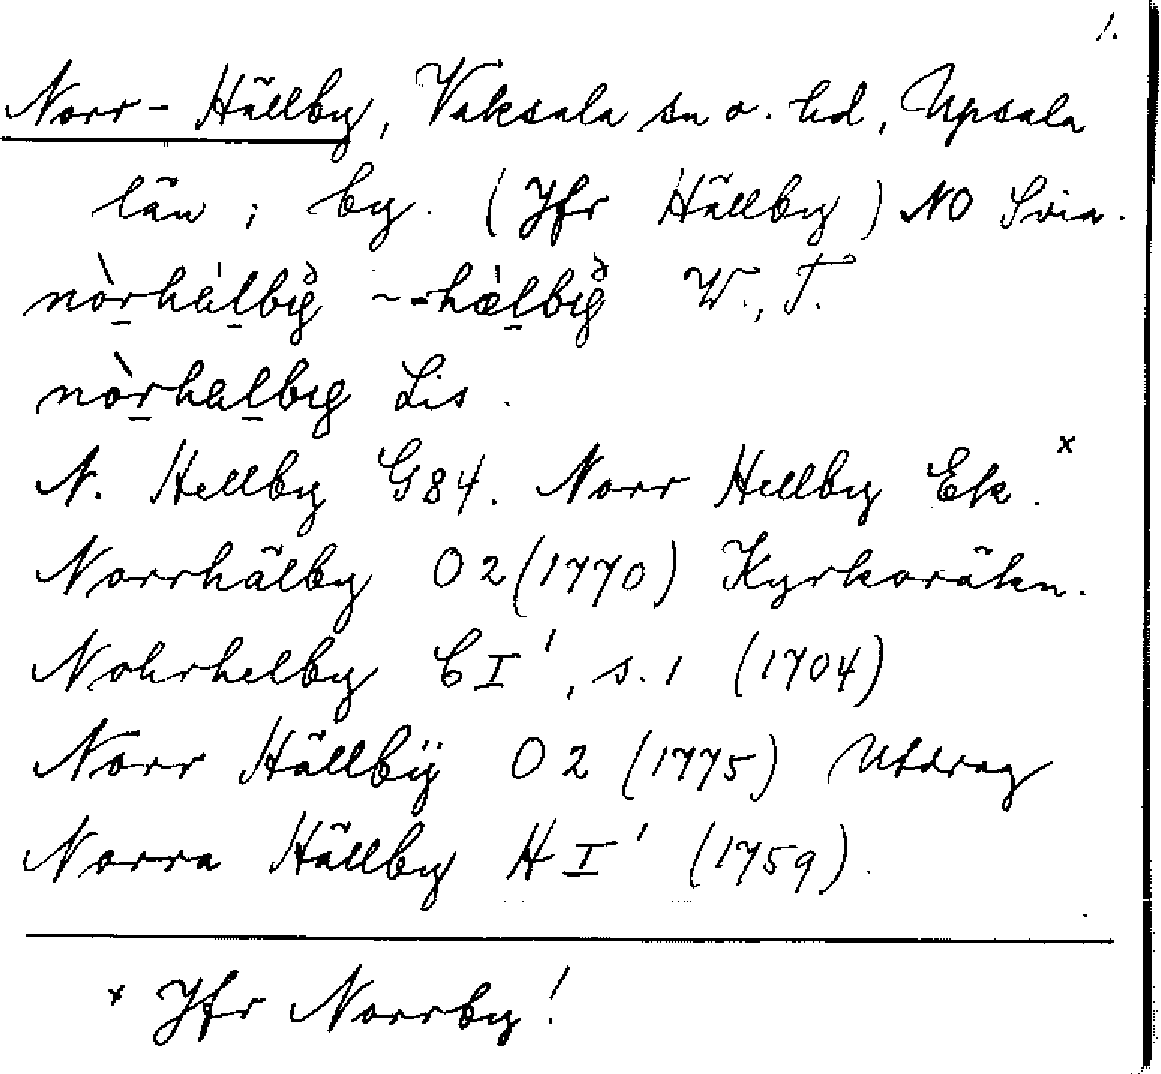 1.
Norr-Hällby, Vaksala sn o. hd, Upsala
län; by. (Jfr Hällby) NO Svia.
nòrhálbig̀ ~-hæ̀lbig̀ W., T.
nòrhalbig Lis.
N. Hellby G84. Norr Hellby Ek.x
Norrhälby O2(1770) Kyrkoräkn.
Nohrhelby CI¹, s.1 (1704)
Norr Hällbÿ O2 (1775) Utdrag
Norra Hällby HI¹ (1759).
x Jfr Norrby!